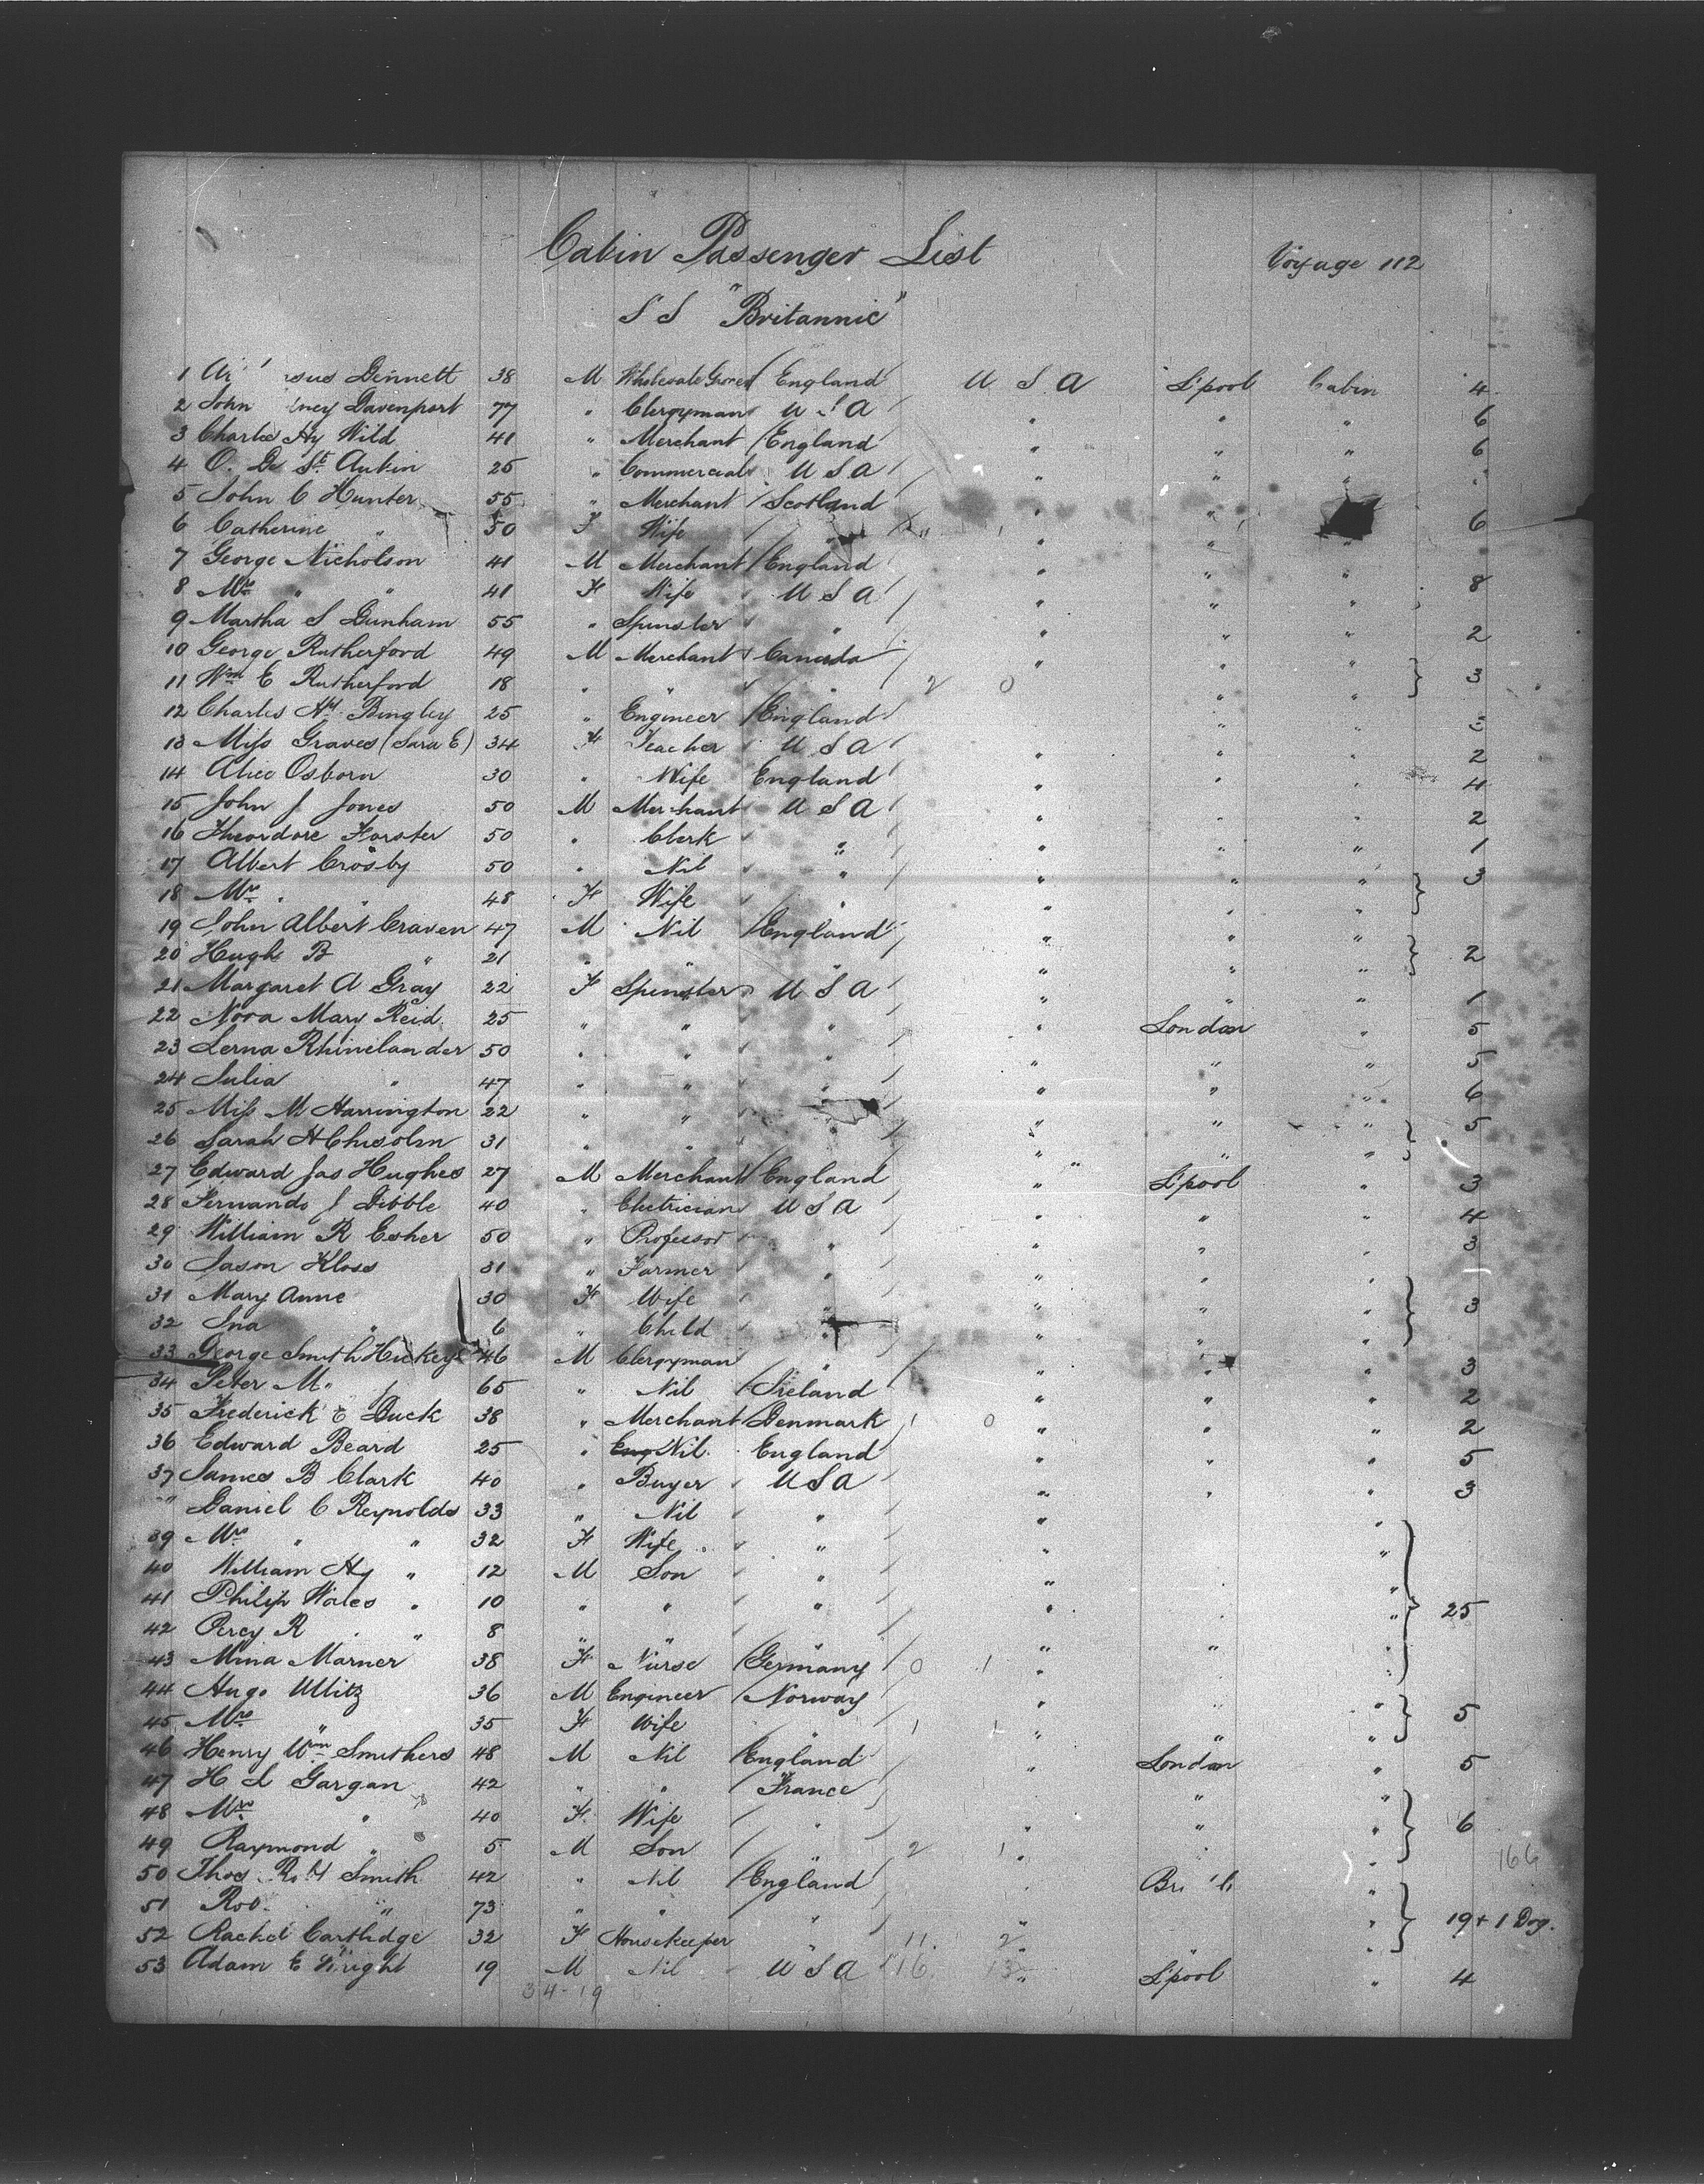 Cabin Passenger List Voyage 112
S S "Britannic"
1 Dennett 38 M Wholesale Grocer England U S A L'pool Cabin 4
2 John Davenport 77 " Clergyman U S A " " " 6
3 Charles Hy Wild 41 " Merchant England " " " 6
4 O. De St. Aubin 25 " Commercial U S A " " "
5 John C Hunter 55 " Merchant Scotland " "
6 Catherine " 50 F Wife " " " " 6
7 George Nicholson 41 M Merchant England " " "
8 Mrs " " 41 F Wife U S A " " " 8
9 Martha S Dunham 55 " Spinster " " " " 2
10 George Rutherford 49 M Merchant Canada " " "
11 Wm E Rutherford 18 " " " 2 0 " " } 3
12 Charles Hy Bingley 25 " Engineer England " "
13 Miss Graves (Sara E) 34 F Teacher U S A " " " 2
14 Alice Osborn 30 " Wife England " " " 4
15 John J Jones 50 M Merchant U S A " " " 2
16 Theordore Forster 50 " Clerk " " " " 1
17 Albert Crosby 50 " Nil " " " " 3
18 Mrs " " 48 F Wife " " " " }
19 John Albert Craven 47 M Nil England " " "
20 Hugh B " 21 " " " " " " } 2
21 Margaret A Gray 22 F Spinster U S A " " " 1
22 Nora Mary Reid 25 " " " " London " 5
23 Lerna Rhinelander 50 " " " " " " 5
24 Julia " 47 " " " " " " 6
25 Miss M Harrington 22 " " " " " " 5
26 Sarah H Chisolm 31 " " " " " " }
27 Edward Jas Hughes 27 M Merchant England " L'pool " 3
28 Fernando J Dibble 40 " Electrician U S A " " " 4
29 William R Esher 50 " Professor " " " " 3
30 Jason Kloss 31 " Farmer " " " "
31 Mary Anne 30 F Wife " " " " } 3
32 Ina " 6 " Child " " " "
33 George Smith Hickey 46 M Clergyman " " " " 3
34 Peter M. 65 " Nil Ireland " " " 2
35 Frederick E Duck 38 " Merchant Denmark 1 0 " " " 2
36 Edward Beard 25 " Nil England " " " 5
37 James B Clark 40 " Buyer U S A " " " 3
" Daniel C Reynolds 33 " Nil " " "
39 Mrs " " 32 F Wife " " "
40 William Hy " 12 M Son " " "
41 Philip Wales " 10 " " " " " } 25
42 Percy R " 8 " " " " " "
43 Mina Marner 38 F Nurse Germany 0 1 " "
44 Hugo Ullitz 36 M Engineer Norway " "
45 Mrs " 35 F Wife " 1 1 " " " } 5
46 Henry Wm Smithers 48 M Nil England " London " 5
47 H L Gargan 42 " " France " "
48 Mrs " 40 F Wife " " " " } 6
49 Raymond " 5 M Son 2 1 " " 166
50 Thos. Smith 42 " Nil England "
51 Rob. " 73 " " " " } 19 + 1 Dog.
52 Rachel Cartlidge 32 F Housekeeper 11 2
53 Adam E Wright 19 M Nil U S A 16 13 " L'pool " 4
34-19